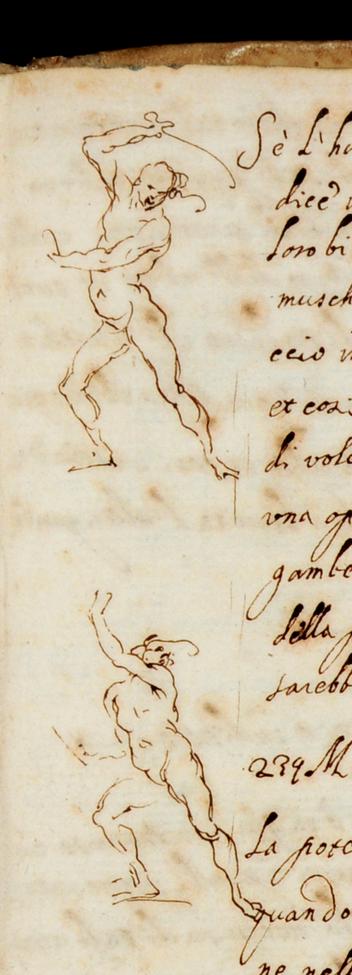 Sè l'ho
dice
loro bi
musch
ccio
et cosi
di vole
vna op
gambe
della
sarebb
239 M
la pote
quando
ne nel